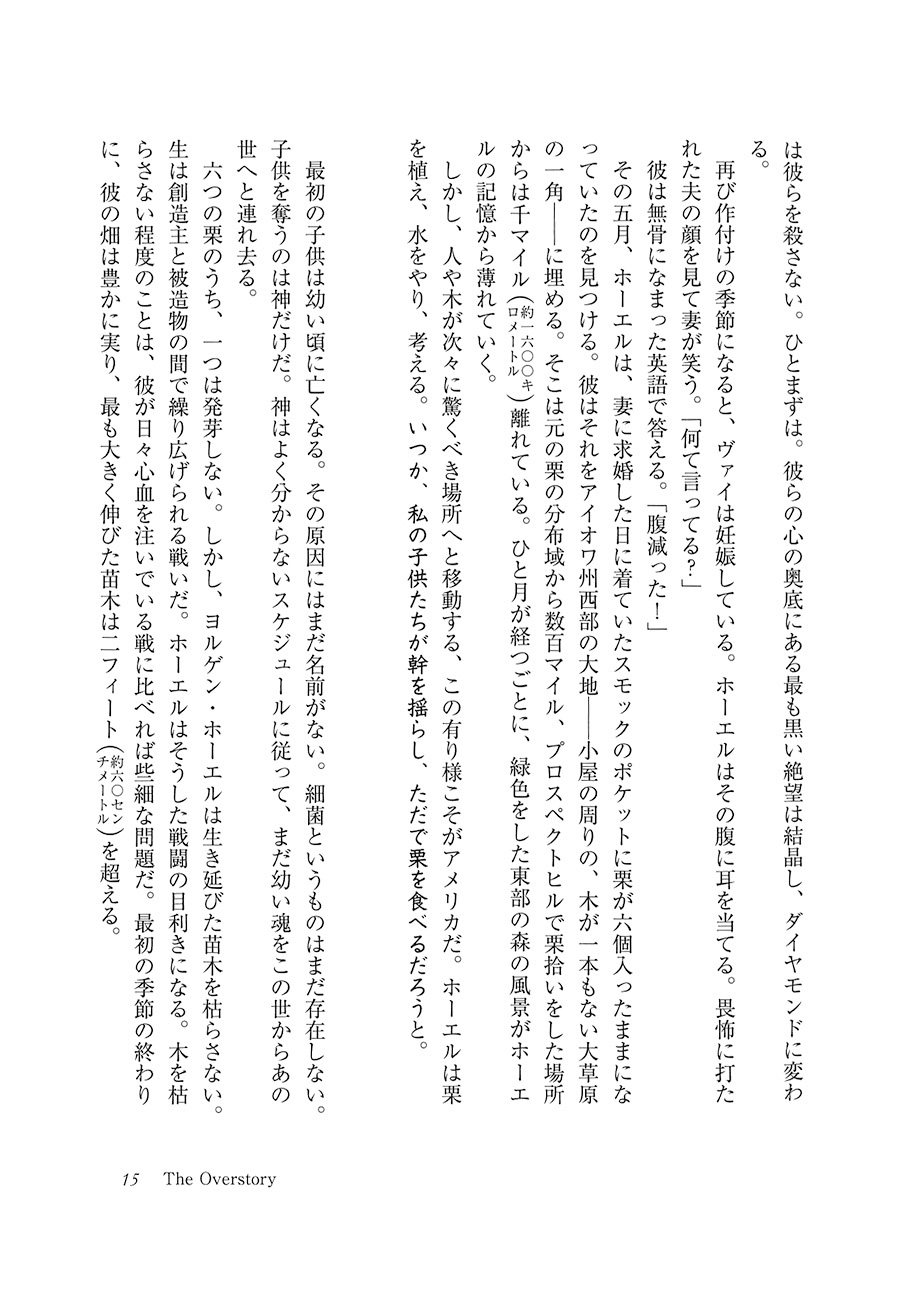 は彼らを殺さない。ひとまずは。彼らの心の奥底にある最も黒い絶望は結晶し、ダイヤモンドに変わ
る。
再び作付けの季節になると、ヴァイは妊娠している。ホーエルはその腹に耳を当てる。畏怖に打た
れた夫の顔を見て妻が笑う。「何て言ってる?」
彼は無骨になまった英語で答える。「腹減った!」
その五月、ホーエルは、妻に求婚した日に着ていたスモックのポケットに栗が六個入ったままにな
っていたのを見つける。彼はそれをアイオワ州西部の大地――小屋の周りの、木が一本もない大草原
の一角――に埋める。そこは元の栗の分布域から数百マイル、プロスペクトヒルで栗拾いをした場所
からは千マイル(約一六〇〇キロメートル)離れている。ひと月が経つごとに、緑色をした東部の森の風景がホーエ
ルの記憶から薄れていく。
しかし、人や木が次々に驚くべき場所へと移動する、この有り様こそがアメリカだ。ホーエルは栗
を植え、水をやり、考える。いつか、私の子供たちが幹を揺らし、ただで栗を食べるだろうと。
最初の子供は幼い頃に亡くなる。その原因にはまだ名前がない。細菌というものはまだ存在しない。
子供を奪うのは神だけだ。神はよく分からないスケジュールに従って、まだ幼い魂をこの世からあの
世へと連れ去る。
六つの栗のうち、一つは発芽しない。しかし、ヨルゲン・ホーエルは生き延びた苗木を枯らさない。
生は創造主と被造物の間で繰り広げられる戦いだ。ホーエルはそうした戦闘の目利きになる。木を枯
らさない程度のことは、彼が日々心血を注いでいる戦に比べれば些細な問題だ。最初の季節の終わり
に、彼の畑は豊かに実り、最も大きく伸びた苗木は二フィート(約六〇センチメートル)を超える。
15 The Overstory